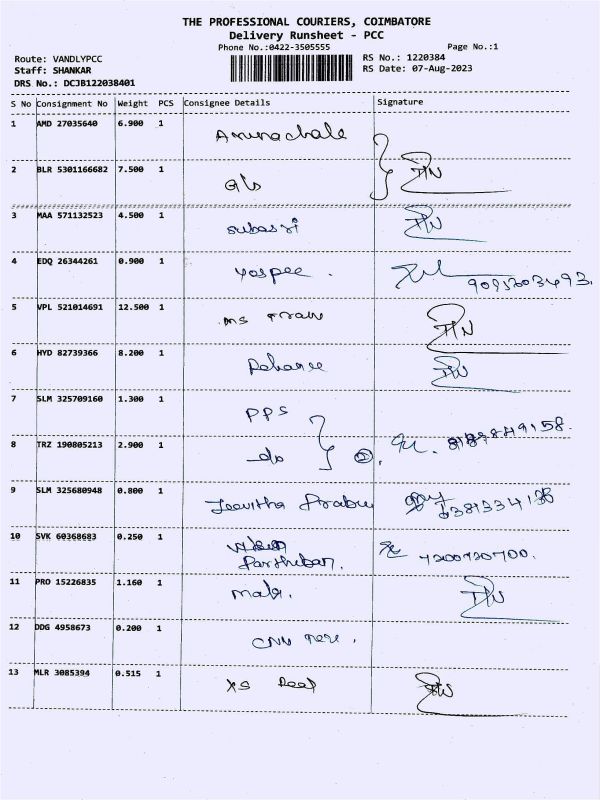 THE PROFESSIONAL COURIERS, COIMBATORE
Delivery Runsheet - PCC
Phone No.:0422-3505555
Page No.:1
Route: VANDLYPCC
RS No.: 1220384
Staff: SHANKAR
RS Date: 07-Aug-2023
DRS No.: DCJB122038401
S No Consignment No Weight PCS Consignee Details Signature
1 AMD 27035640 6.900 1 Arunachala
2 BLR 5301166682 7.500 1
3 MAA 571132523 4.500 1 Subassi
4 EDQ 26344261 0.900 1 yospee.
5 VPL 521014691 12.500 1 ms
6 HYD 82739366 8.200 1
7 SLM 325709160 1.300 1 PPS
8 TRZ 190805213 2.900 1 do
9 SLM 325680948 0.800 1 Jeevitha Prabu
10 SVK 60368683 0.250 1 Parthiban. 7200730700.
11 PRO 15226835 1.160 1
12 DDG 4958673 0.200 1
13 MLR 3085394 0.515 1